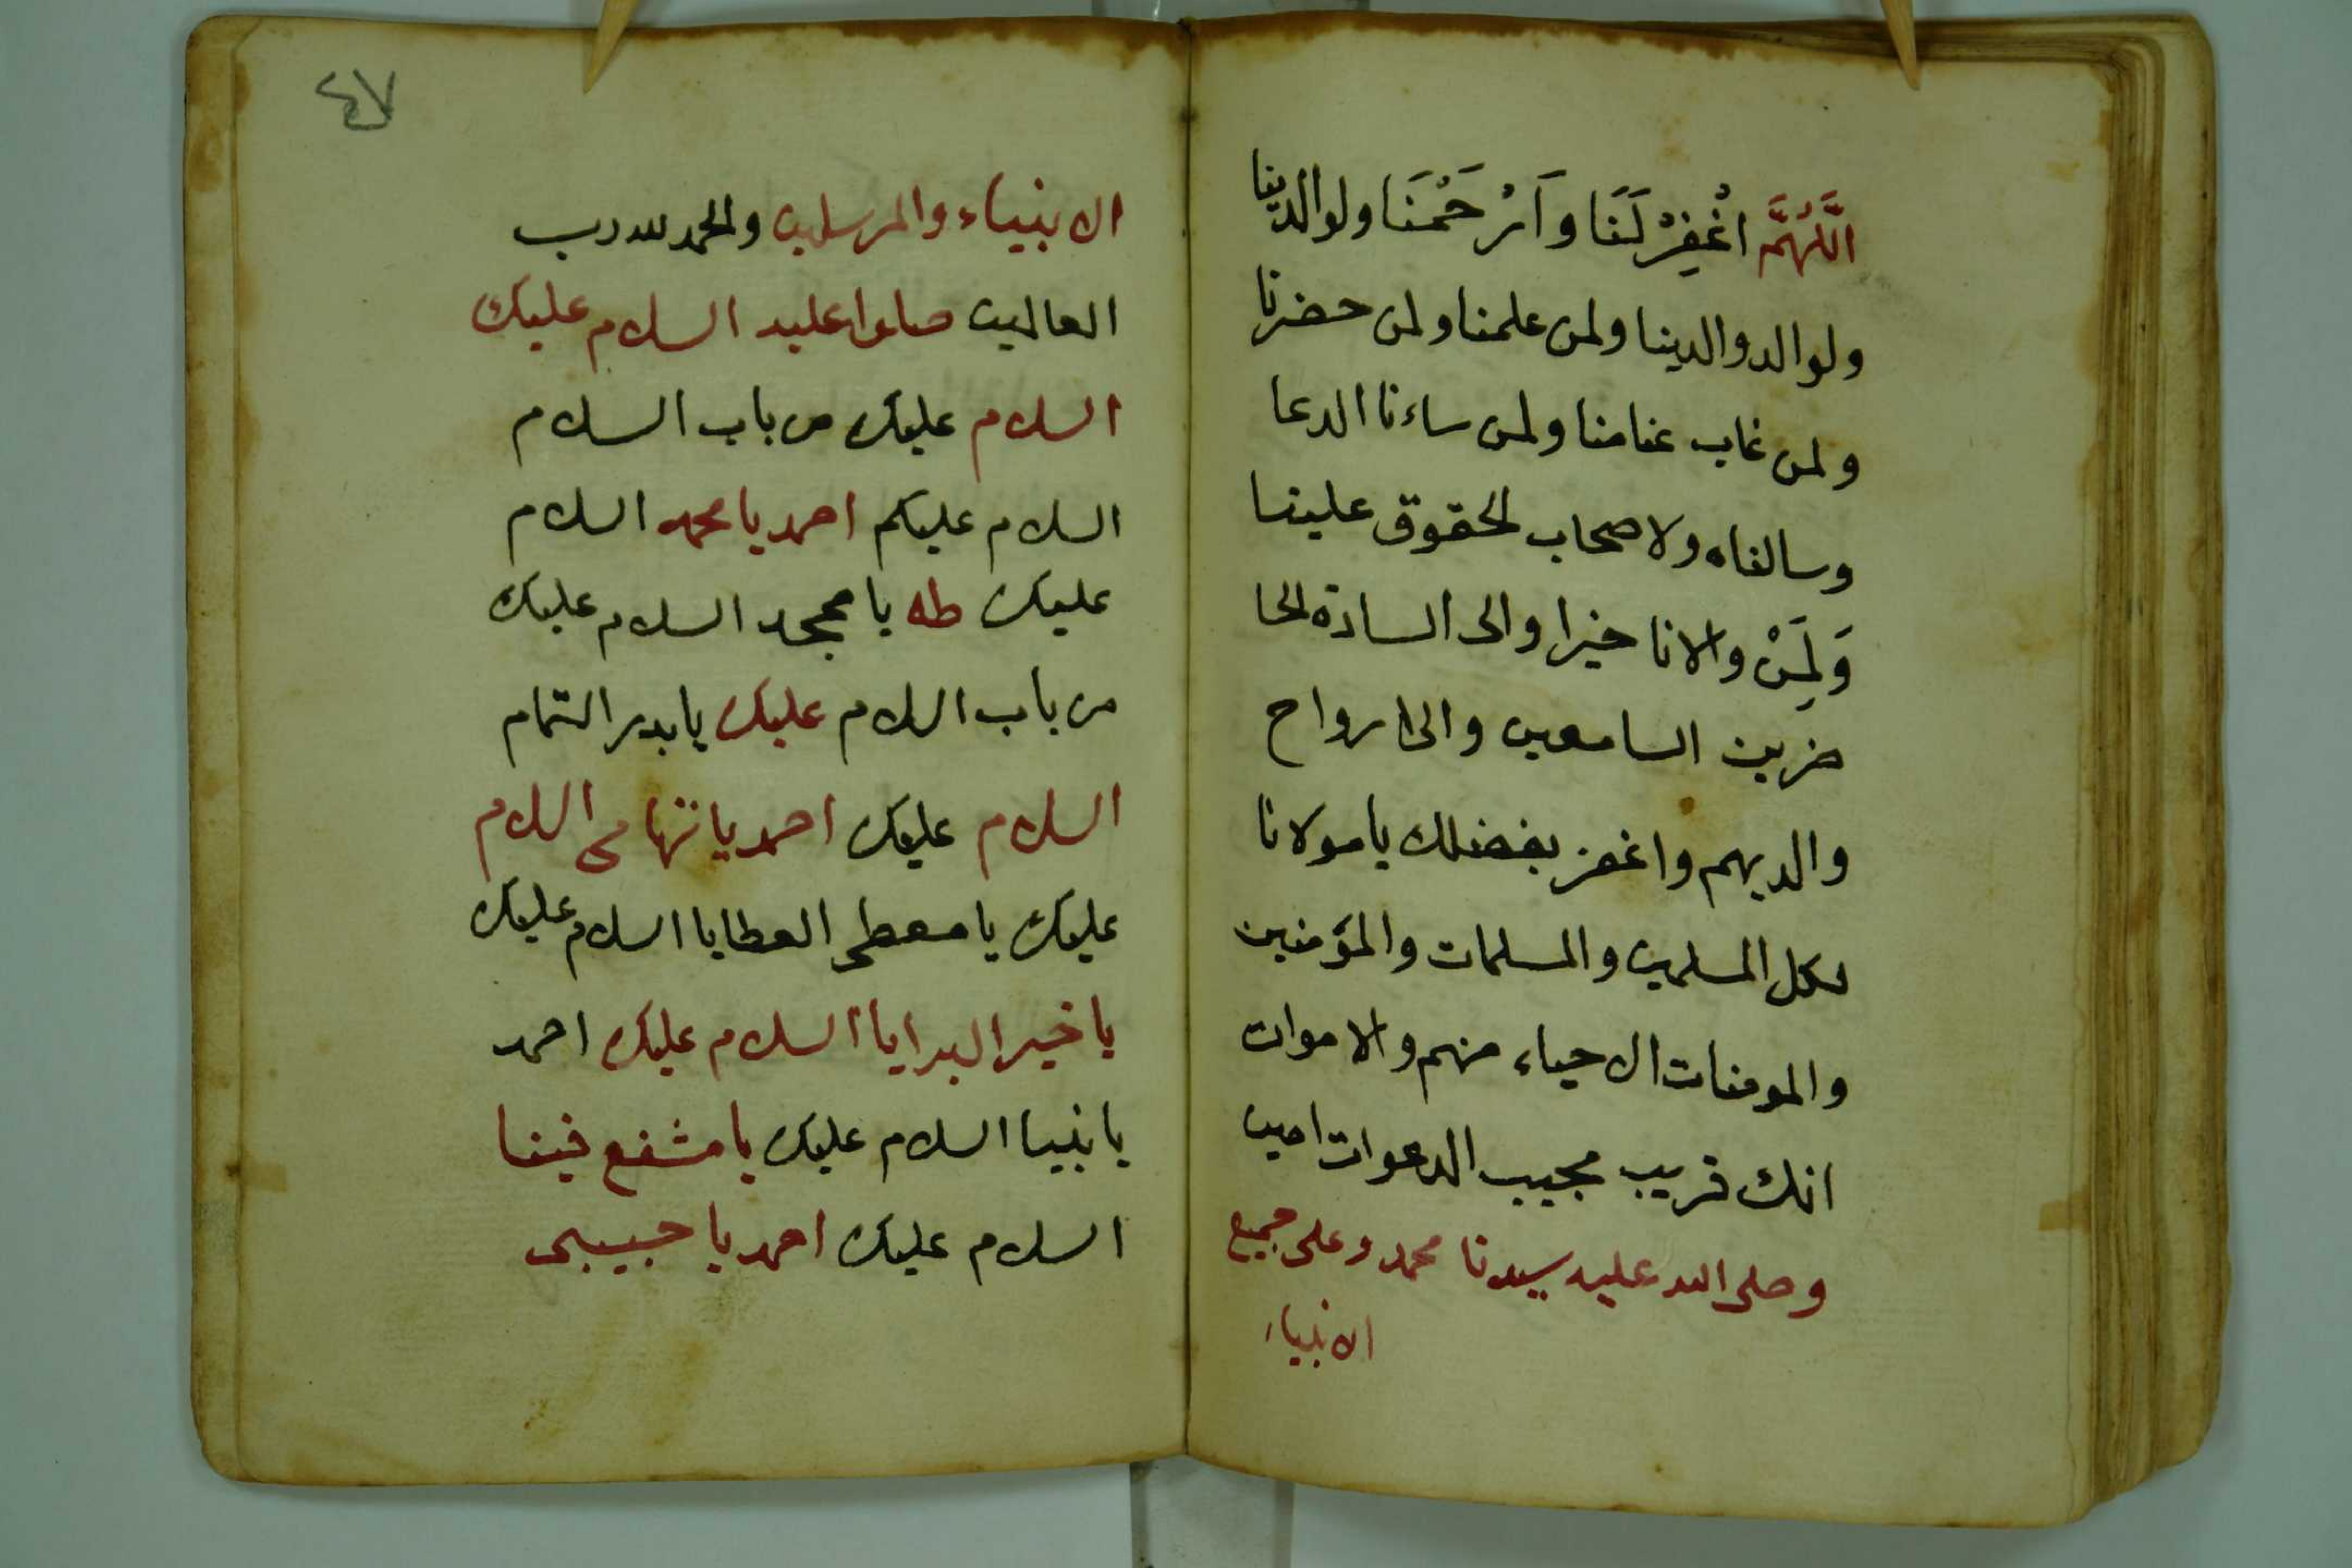 اَللّٰهُمَّ اغْفِرْ لَنَا وَارْحَمْنَا ولوالدينا
ولوالد والدينا ولمن علمنا ولمن حضرنا
ولمن غاب عنامنا ولمن ساءنا الدعا
وسالناه ولاصحاب لحقوق علينا
وَلِمَنْ والانا خيرا والى السادة الحا
ضرين السامعين والى ارواح
والديهم واغفر بفضلك يامولانا
لكل المسلمين والمسلمات والمؤمنين
والمومنات الاحياء منهم والاموات
انك قريب مجيب الدعوات امين
وصلى الله عليه سيدنا محمد وعلى جميع
الانبياء
٤٧
الانبياء والمرسلين والحمد لله رب
العالمين صلوا عليه السلام عليك
السلام عليك من باب السلام
السلام عليكم احمد يا محمد السلام
عليك طه يا ممجد السلام عليك
من باب السلام عليك يا بدر التمام
السلام عليك احمد يا تهامى السلام
عليك يا معطى العطايا السلام عليك
يا خير البرايا السلام عليك احمد
يا نبينا السلام عليك يا مشفع فينا
السلام عليك احمد يا حبيبى